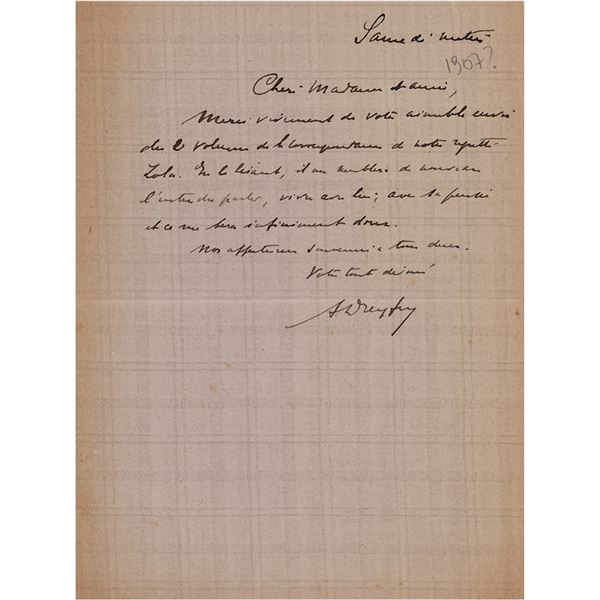 Samedi matin
1907?
Chère Madame et amie,
Merci vivement de votre aimable envoi
du 2e volume de la correspondance de notre regretté
Zola. En le lisant, il me semblera de nouveau
l'entendre parler, vivre avec lui, avec sa pensée
et ce me sera infiniment doux.
Nos affectueux souvenirs à tous deux.
Votre tout dévoué
A Dreyfus